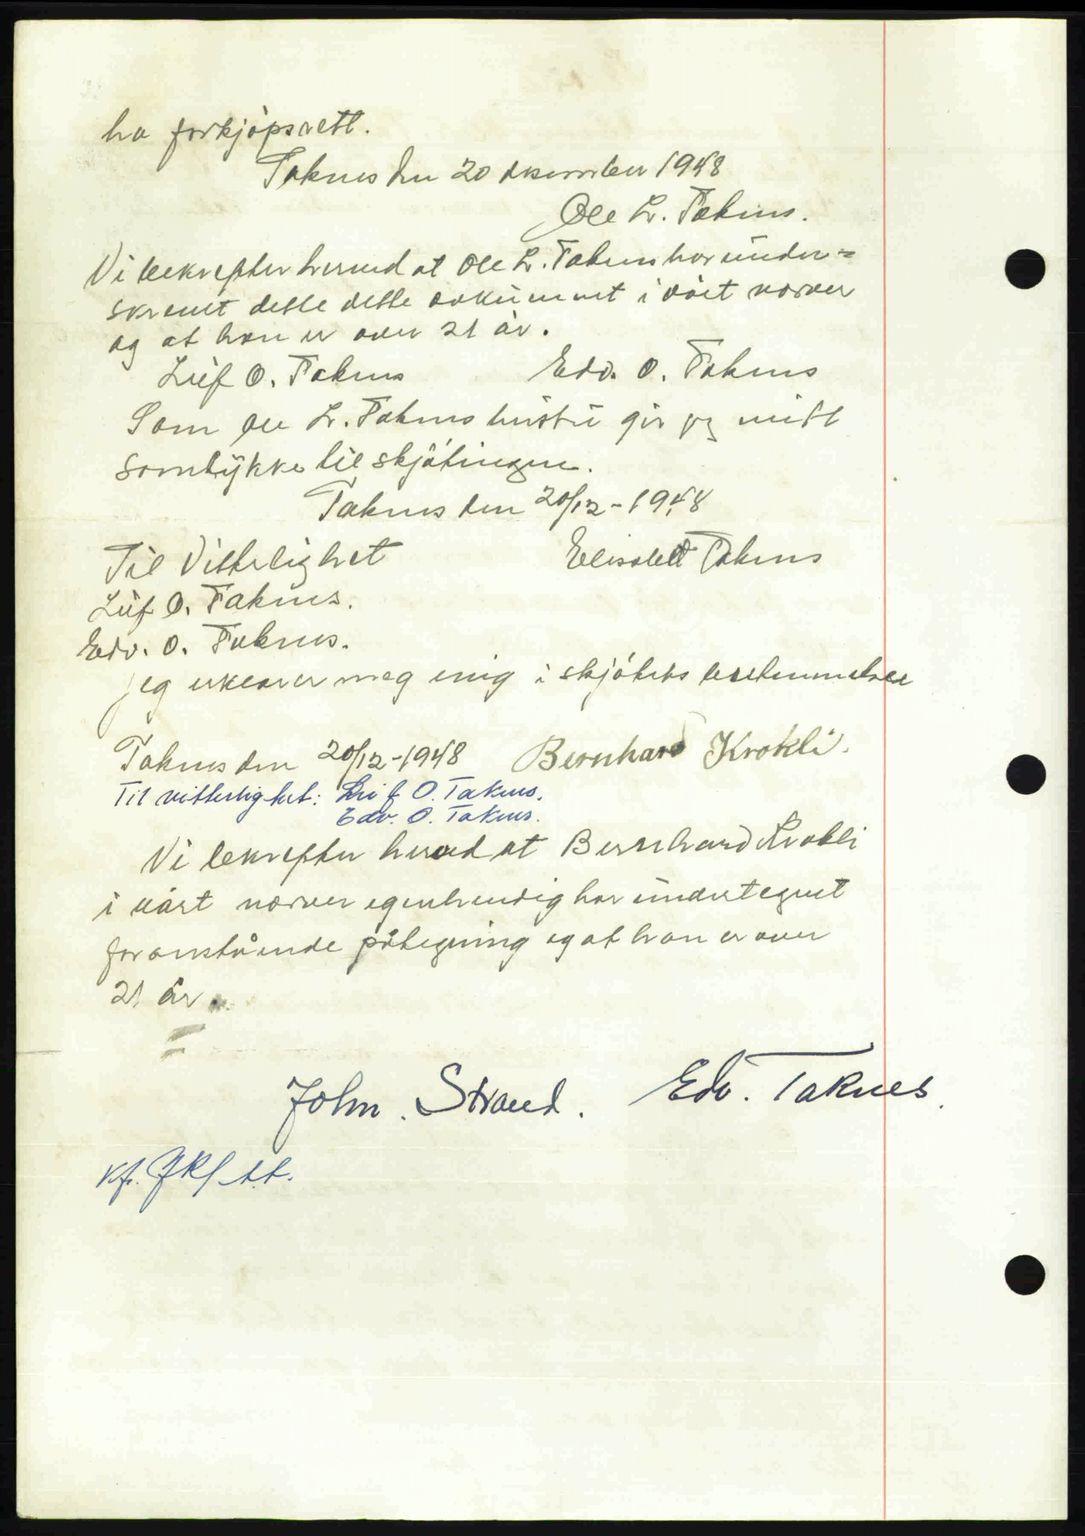 ha forkjøpsrett.
Taknes den 20 desember 1948
Ole L. Taknes.
Vi bekrefter herved at Ole L. Taknes har under=
skrevet dette dette dokument i vårt nærver
og at han er over 21 år.
Leif O. Taknes Edv. O. Taknes
Som Ole L. Taknes hustru gir jeg mitt
samtykke til skjøtingen.
Taknes den 20/12-1948
Til Vitterlighet Elisabett Taknes
Leif O. Taknes.
Edv. O. Taknes.
Jeg erklærer meg enig i skjøtets bestemmelser
Taknes den 20/12-1948 Bernhard Krokli.
Til vitterlighet: Leif O. Taknes.
Edv. O. Taknes.
Vi bekrefter herved at Bernhard Krokli
i vårt nærver egenhendig har undertegnet
foranstående påtegning og at han er over
21 år.
John. Strand. Edv. Taknes.